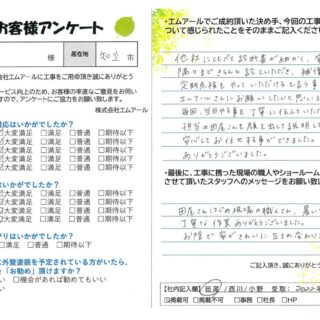 お客様アンケート
様
居在地
知立 市
会社エムアールに工事をご用命頂き誠にありがとう
サービス向上のため、お客様の率直なご意見をお伺い
ますので、アンケートにご協力をお願い致します。
株式会社エムアール
対応はいかがでしたか？
大変満足 □満足 □普通 □期待以下
いかがでしたか？
大変満足 □満足 □普通 □期待以下
大変満足 □満足 □普通 □期待以下
大変満足 □満足 □普通 □期待以下
大変満足 □満足 □普通 □期待以下
大変満足 □満足 □普通 □期待以下
がりはいかがでしたか？
□満足 □普通 □期待以下
に外壁塗装を予定されている方がいたら、
を「お勧め」頂けますか？
い □機会があれば勧めてもいい
・エムアールでご成約頂いた決め手、今回の工事
ついて感じられたことをそのままご記入ください
他社にくらべて診断書が細かく、家
隅々まできちんと診ていただき、補償
定期点検をやっていただけると言う事
エムアールさんにお願いしたいと思い
毎回、当日やる事を丁寧に伝えていただ
担当の田尾さんも顔を出して説明し
安心してお任せする事ができました。
ありがとうございました。
・最後に、工事に携った現場の職人やショールーム
させて頂いたスタッフへのメッセージをお願い致
田尾さんはじめ現場の職人さん、暑い
丁寧な作業ありがとうございました。
お陰で家がきれいに生まれ変わり
ご記入頂き、誠にありがとう
【社内記入欄】田尾/西川/小野 受取：2022年
掲載可 □掲載不可 □事務 □社長 □HP